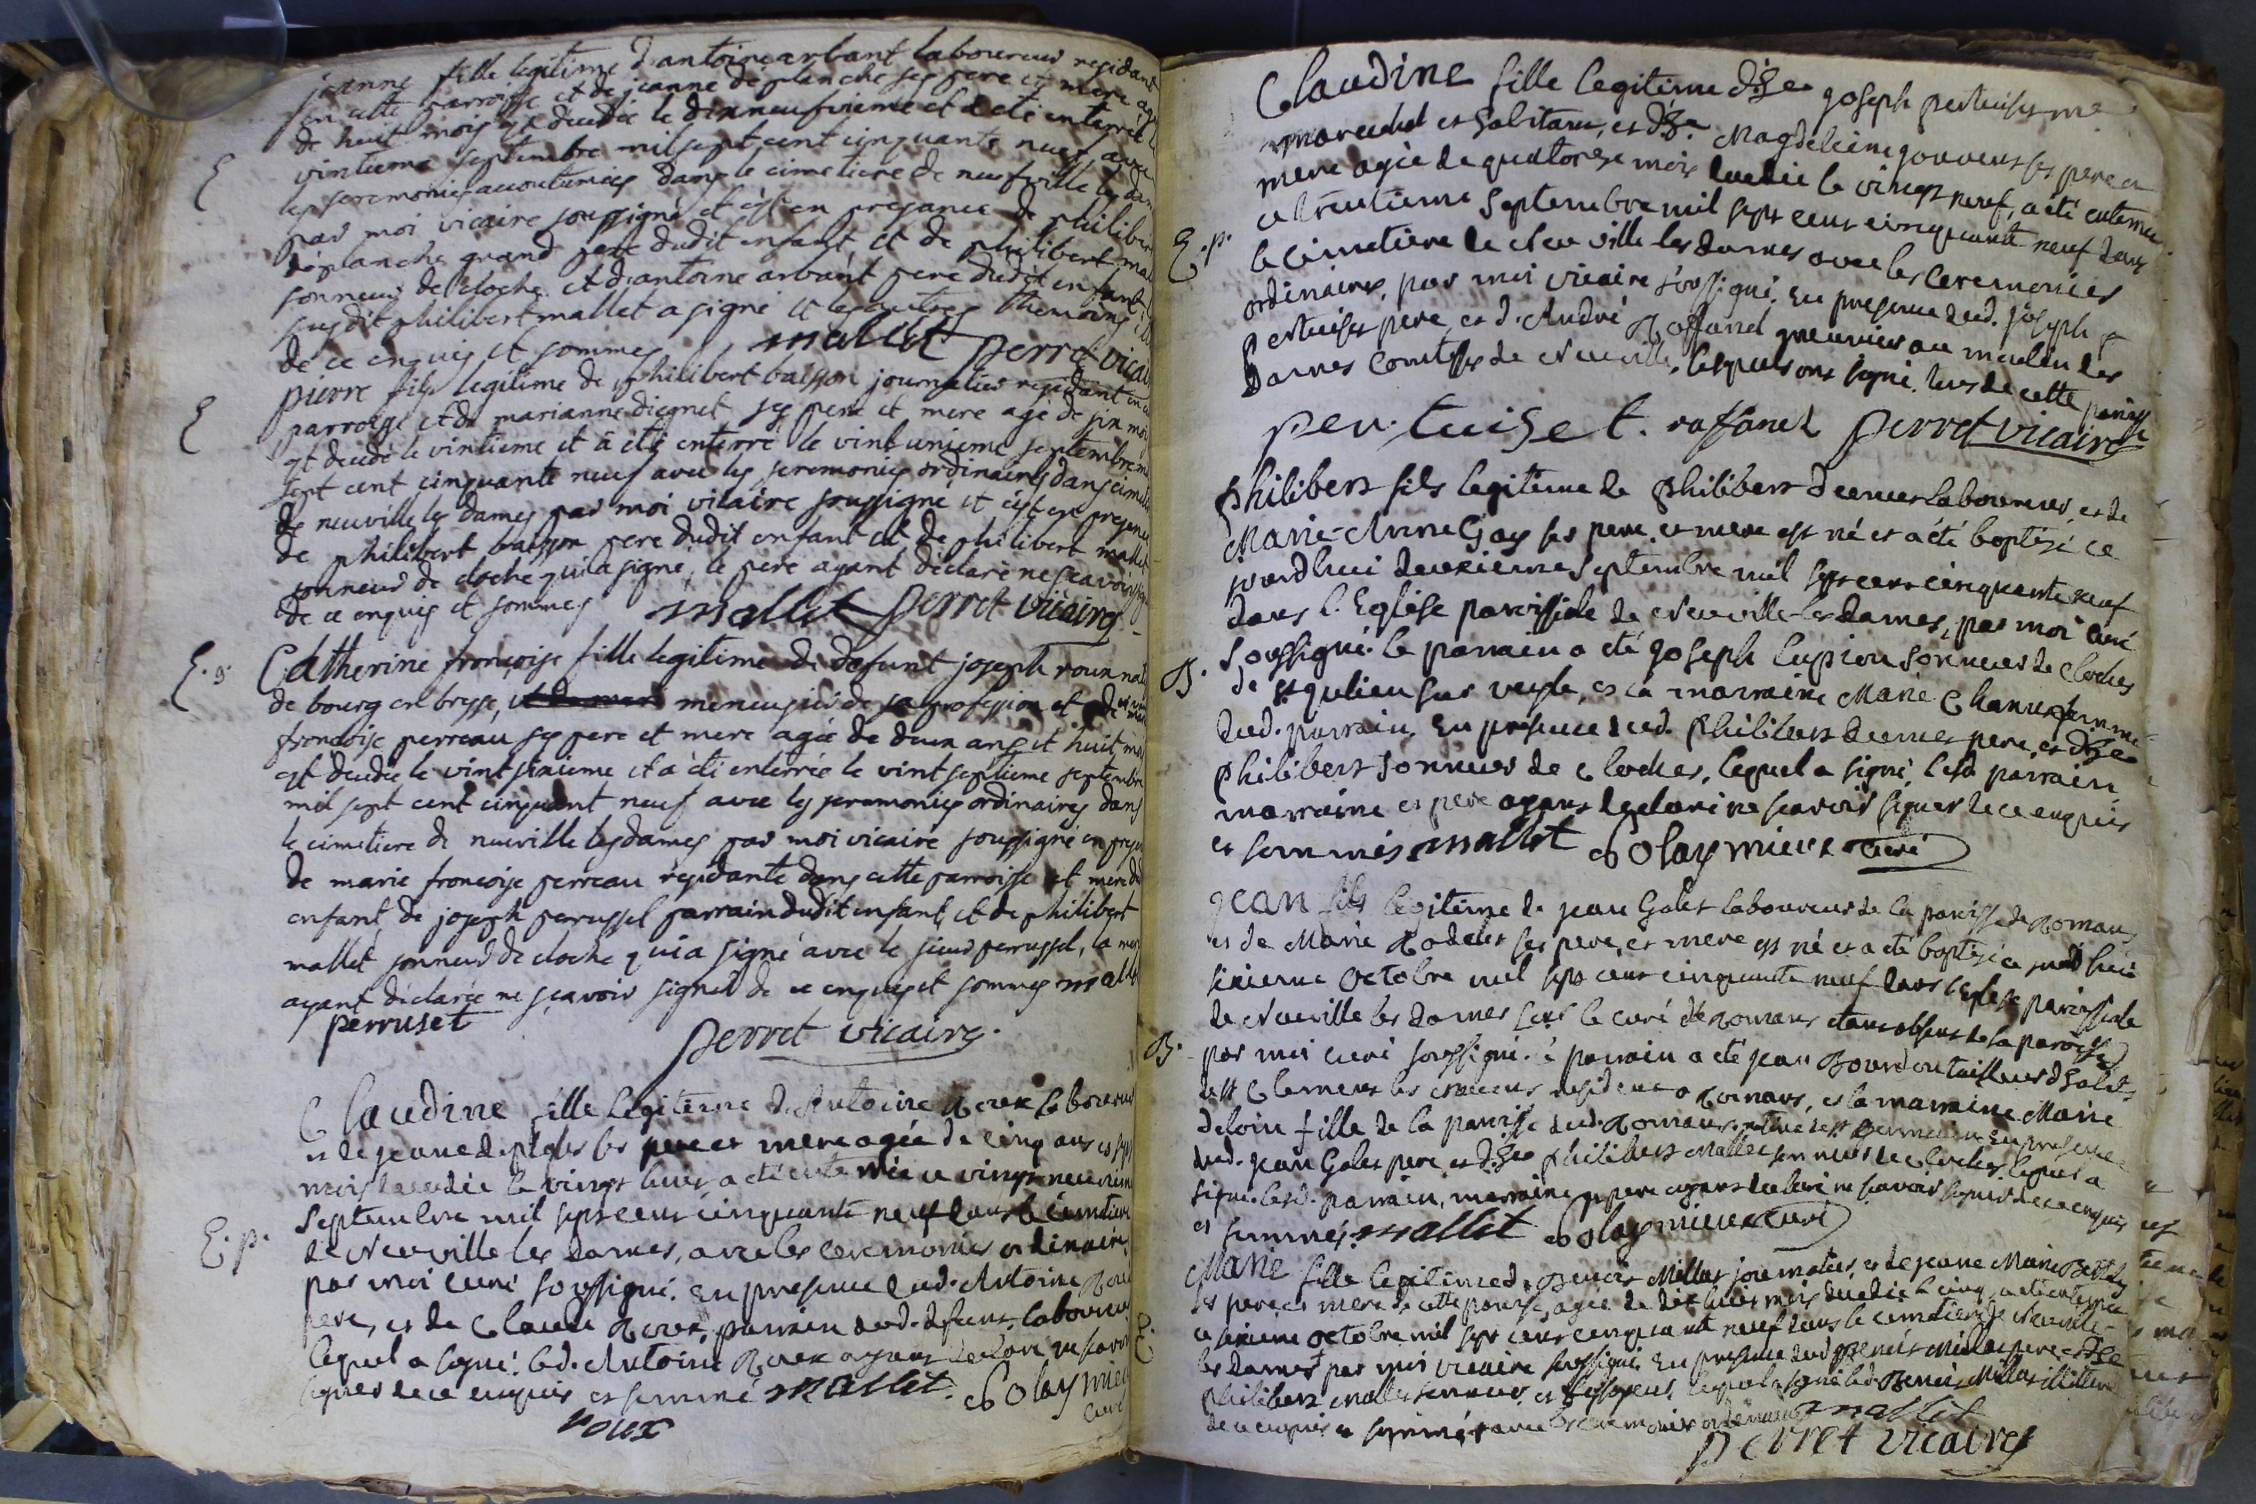 jeanne fille legitime d'antoine arbant laboureur residant
en cette parroisse et de jeanne déplanche ses pere et mere agée
de huit mois est decedée le dixneufvieme et a eté enterré le
vintieme septembre mil sept cent cinquante neuf avec
les ceremonies accoutumées dans le cimetiere de neufville les dam
par moi vicaire soussigné et c'est en presance de philiber
déplanche grand pere dudit enfant et de philibert mal
sonneur de cloche et d'antoine arbant pere dudit enfant
susdit philibert mallet a signé et les autres themoins
de ce enquis et sommes mallet perret vicair
E
pierre fils legitime de philibert basson journalier residant en
parroise et de marianne diegnet ses pere et mere age de six moi
est decedé le vintieme et à eté enterré le vint unieme septembre mi
sept cent cinquante neuf avec les seremonies ordinaires dans cimetie
de neuville les dames par moi vicaire soussigné et c'est en presence
de philibert basson pere dudit enfant et de philibert mallet
sonneur de cloche qui a signé, le pere ayant déclaré ne scavoir
de ce enquis et sommes mallet perret vicaire
E
Catherine françoise fille legitime de defunt joseph
de bourg en bresse, meneusier de sa profession et de
françoise perreau ses pere et mere agée de deux ans et huit moi
est decedée le vint sixieme et a èté enterrée le vint septieme septembre
mil sept cent cinquant neuf avec les seremonies ordinaires dans
le cimetiere de neuville les dames par moi vicaire soussigné en prese
de marie françoise perreau residante dans cette parroisse et mere du
enfant, de joseph perussel parrain dudit enfant et de philibert
mallet sonneur de cloche qui a signé avec le sieur perussel, la mere
ayant déclarée ne sçavoir signer de ce enquis et sommes mall
perruset perret vicaire
Claudine fille legitime d'Antoine Roux laboureur
et de jeanne ses pere et mere agée de cinq ans et sept
mois decedée le vingt huit, a eté enterrée ce vingt neuvieme
Septembre mil sept cent cinquante neuf dans le cimetiere
de Neuville les Dames, avec les ceremonies ordinaires
par moi curé soussigné. En presence dud. Antoine Roux
pere, et de Claude Roux, parrain dud. defunt, laboureur
lequel a signé. led. Antoine Roux ayant déclaré ne savoir
signer de ce enquis et sommé mallet. Solaymieux
roux curé
E. p.
Claudine fille legitime d'h.e joseph pertuiset me
marechal et habitant, et d'h.e Magdeleine gouvent ses pere et
mere agée de quatorze mois decedée le vingt neuf, a eté enterrée
ce trentieme Septembre mil sept cent cinquante neuf dans
le cimetiere de Neuville les dames avec les ceremonies
ordinaires, par moi vicaire soussigné. En presence dud. joseph
pertuiset pere, et d. André Raffanel grenier au moulin des
Dames Comtesses de Neuville, lesquels ont signé. tous de cette paroisse
per. tuiset. raffanel perret vicaire
E. p.
Philibert fils legitime de Philibert laboureur, et de
Marie-Anne Gay ses pere et mere est né et a été baptisé ce
jourdhui deuxieme Septembre mil sept cent cinquante neuf
dans l'Eglise paroissiale de Neuville les dames, par moi curé
Soussigné. le parrain a eté joseph sonneur de cloches
de st julien sur veyle, et la marraine Marie femme
dud. parrain, En presence dud. Philibert pere, et d'h.e
Philibert Sonneur de cloches, lequel a signé, lesd parrain,
marraine et pere ayant declaré ne scavoir signer de ce enquis
et sommés mallet Solaymieux curé
B.
jean fils legitime de jean Galet laboureur de la paroisse de Romans
et de Marie ses pere et mere est né et a eté baptisé ce jourdhui
sixieme octobre mil sept cent cinquante neuf dans l'eglise paroissiale
de Neuville les dames le curé de Romans etant absent de sa paroisse
par moi curé soussigné. le parrain a eté jean tailleur d'habits
de st Clement residant a Romans, et la marraine Marie
deloin fille de la paroisse dud. Romans En presence
dud. jean Galet pere, et d'h.e philibert Mallet sonneur de cloches lequel a
signé. lesd. parrain, marraine et pere ayant declaré ne scavoir signer de ce enquis
et sommés. mallet Solaymieux curé
B.
Marie fille legitime de Benoit Millet journalier, et de jeanne Marie
ses pere et mere de cette paroisse, agée de dix huit mois decedée le cinq, a eté enterrée
ce sixieme octobre mil sept cent cinquante neuf dans le cimetiere de Neuville
les dames par moi vicaire soussigné En presence dud Benoit Millet pere et d'h.e
philibert mallet sonneur, lequel a signé led. Benoit Millet illiteré
de ce enquis et sommé avec les ceremonies ordinaires mallet
perret vicaire